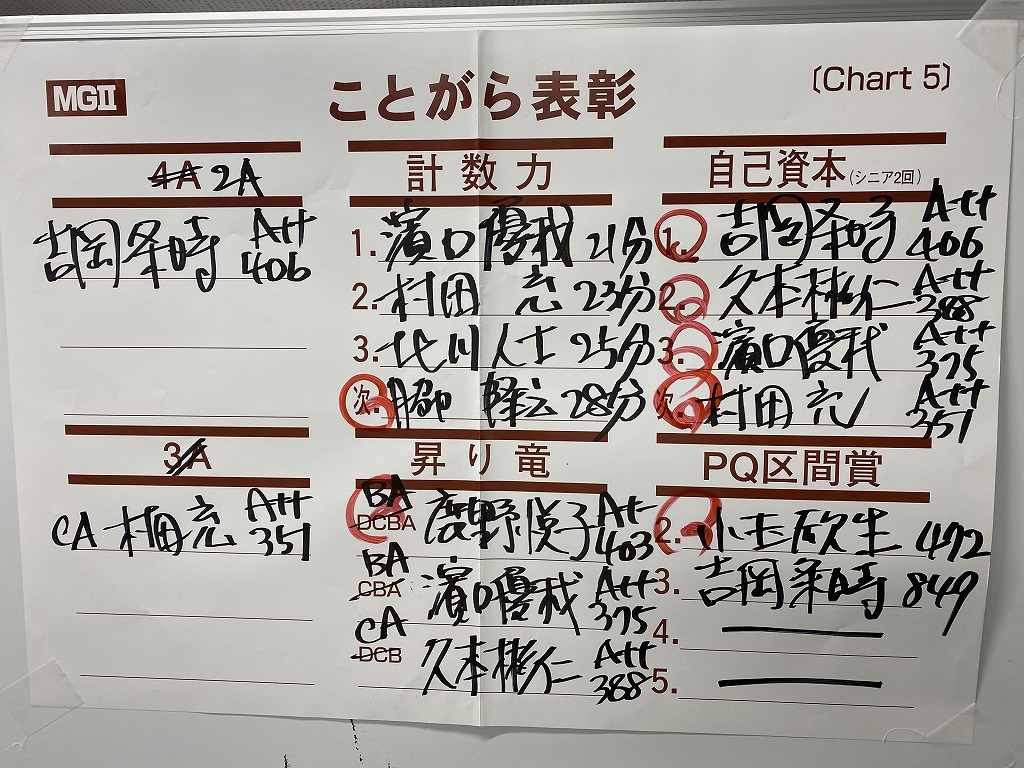 MGⅡ
ことがら表彰
〔Chart 5〕
4A 2A
吉岡 A++
406
3A
CA 村田充 A++
351
計数力
1. 濱口優哉 21分
2. 村田 充 23分
3. 北川人士 25分
次. 脇 28分
昇り竜
BA
DCBA 鹿野悦子 A+
403
BA
CBA 濱口優哉 A++
375
CA
DCB 久本彬仁 A++
388
自己資本(シニア2回)
1. 吉岡 A++
406
2. 久本彬仁 A++
388
3. 濱口優哉 A++
375
次. 村田充 A++
351
PQ区間賞
2. 小玉欣生 472
3. 吉岡 849
4.
5.